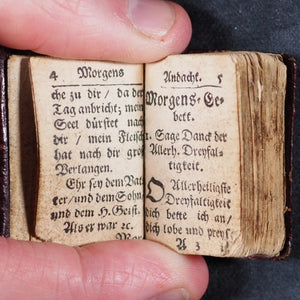 4 Morgens
che zu dir / da der
Tag anbricht; mein
Seel dürstet nach
dir / mein Fleisch
hat nach dir gros
Verlangen.
Ehr sey dem Vat
er / und dem Sohn
und dem H. Geist.
Als er war ꝛc.
Mor
Andacht. 5
Morgens-Ge-
bett.
1. Sage Danck der
Allerh. Dreyfal-
tigkeit.
O Allerheiligste
Dreyfaltigkeit
dich bette ich an /
dich lobe und preys
A 3